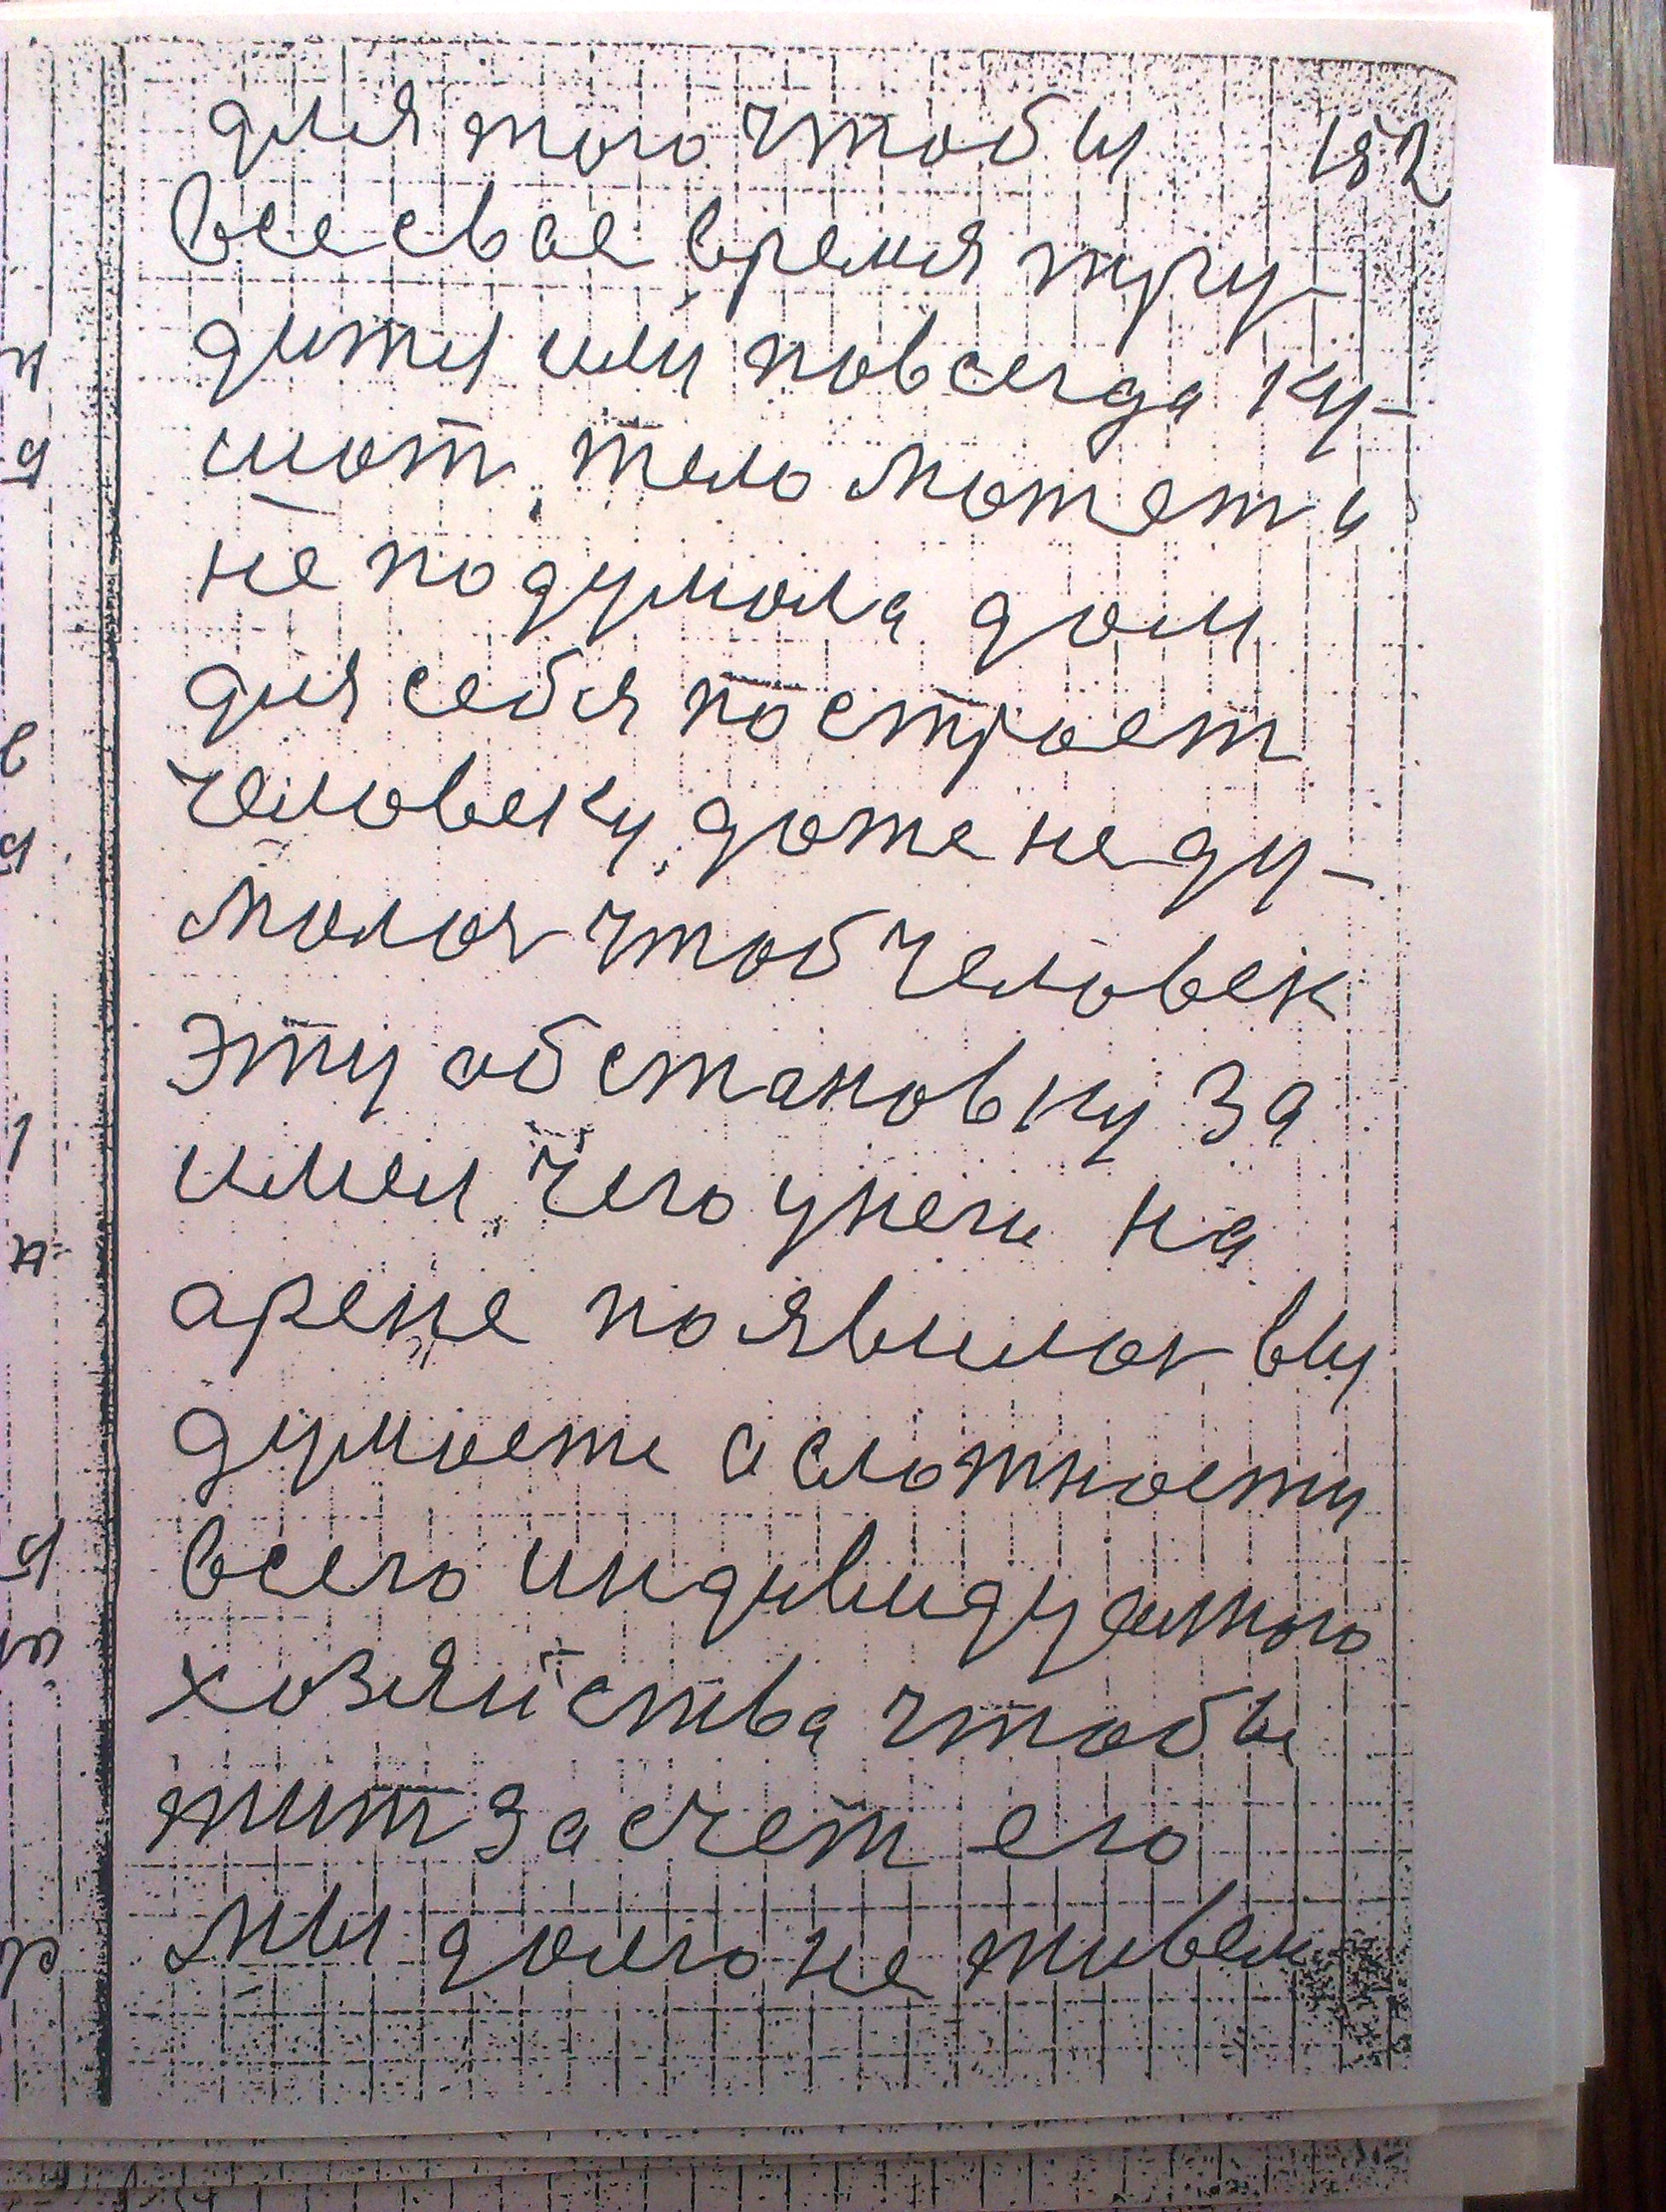 для того чтобы 182
все свое время тру-
диты или повсегда ку-
шот, тело может и
не подумола дом
для себя построет
человеку, доже не ду-
молоя чтоб человек
эту обстановку за
имел чего унеги на
арене появилоя вы
думоете о сложности
всего индивидуалного
хозяйства чтобы
жит за счет его
мы долго не живем